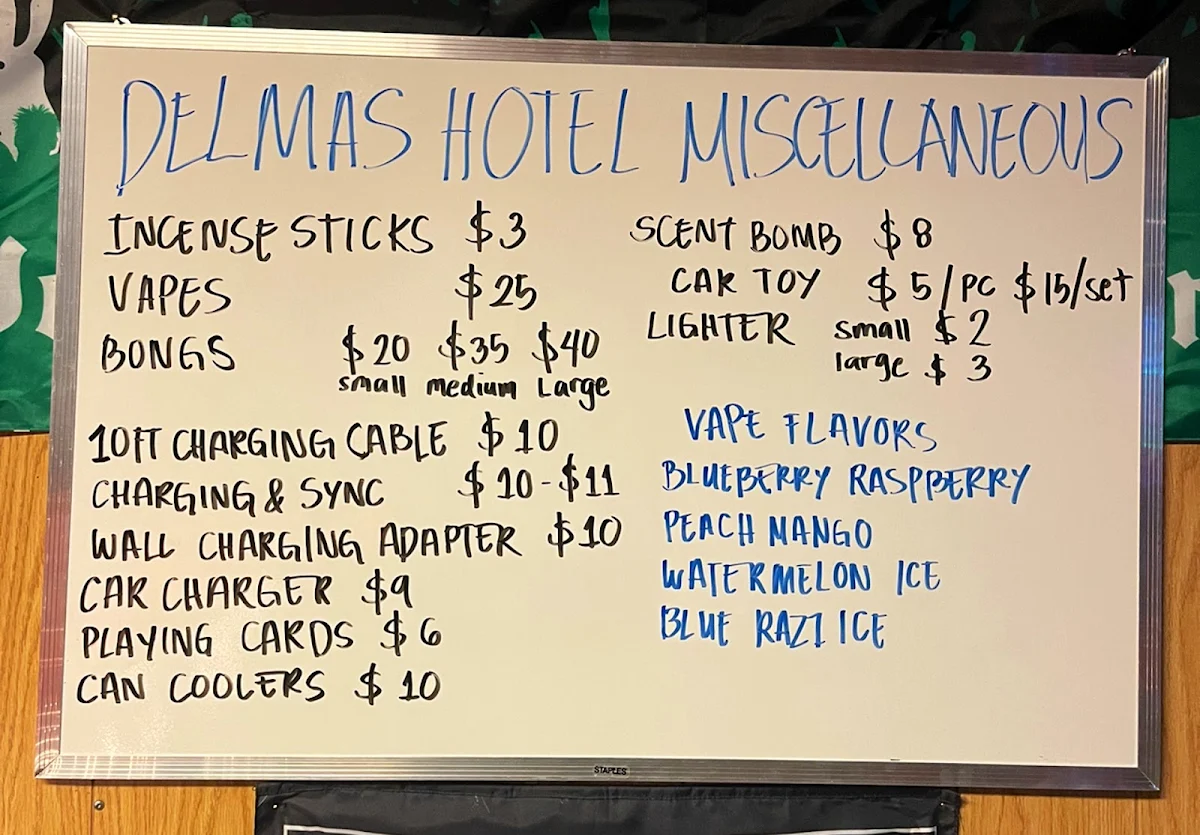 DELMAS HOTEL MISCELLANEOUS
INCENSE STICKS $3
VAPES $25
BONGS $20 $35 $40
small medium Large
10FT CHARGING CABLE $10
CHARGING & SYNC $10-$11
WALL CHARGING ADAPTER $10
CAR CHARGER $9
PLAYING CARDS $6
CAN COOLERS $10
SCENT BOMB $8
CAR TOY $5/PC $15/set
LIGHTER small $2
large $3
VAPE FLAVORS
BLUEBERRY RASPBERRY
PEACH MANGO
WATERMELON ICE
BLUE RAZZ ICE
STAPLES